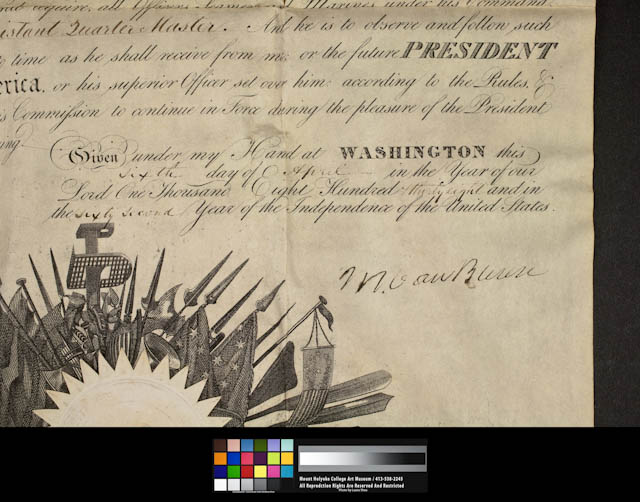 require, all Officers Marines under his Command
istant Quarter Master. And he is to observe and follow such
time as he shall receive from me, or the future PRESIDENT
erica, or his superior Officer set over him, according to the Rules, &
is Commission to continue in Force during the pleasure of the President
ing.
Given under my Hand at WASHINGTON this
Sixth day of April in the Year of our
Lord One Thousand Eight Hundred thirty eight and in
the Sixty Second Year of the Independence of the United States.
M. Van Buren
Mount Holyoke College Art Museum / 413-538-2245
All Reproduction Rights Are Reserved And Restricted